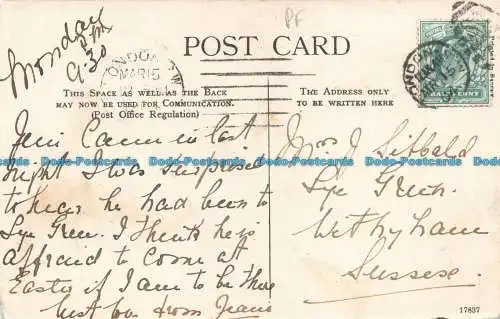 Monday
9.30 pm
PF
POST CARD
THIS SPACE AS WELL AS THE BACK
MAY NOW BE USED FOR COMMUNICATION.
(Post Office Regulation)
THE ADDRESS ONLY
TO BE WRITTEN HERE
LONDON
MAR 15
HALFPENNY
Printed in Saxony
Jim Came in last
night I was surprised
to hear he had been to
Lye Green. I think he is
affraid to come at
Easter if I am to be there
best love from
Mrs J
Lye Green
Withyham
Sussex
17837
Dodo-Postcards Dodo-Postcards Dodo-Postcards Dodo-Postcards